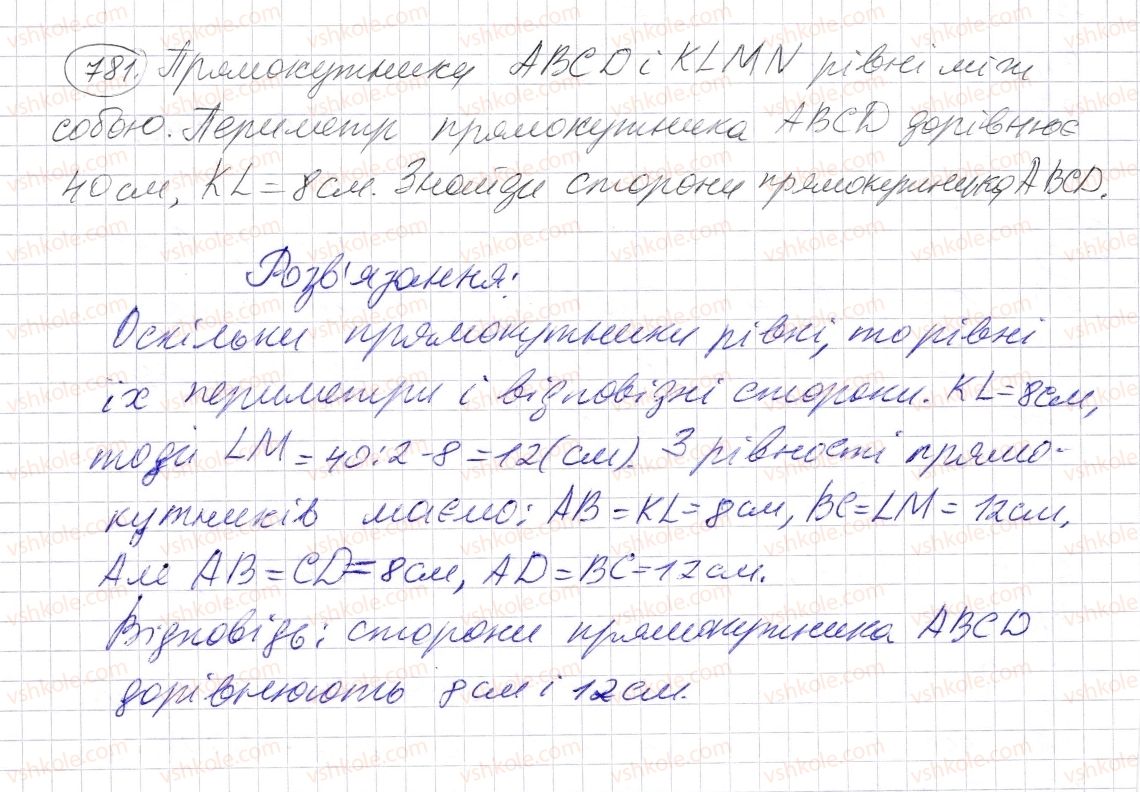 781. Прямокутники ABCD і KLMN рівні між
собою. Периметр прямокутника ABCD дорівнює
40 см, KL = 8 см. Знайди сторони прямокутника ABCD.
Розв'язання:
Оскільки прямокутники рівні, то рівні
їх периметри і відповідні сторони. KL = 8 см,
тоді LM = 40 : 2 - 8 = 12 (см). З рівності прямо-
кутників маємо: AB = KL = 8 см, BC = LM = 12 см,
Але AB = CD = 8 см, AD = BC = 12 см.
Відповідь: сторони прямокутника ABCD
дорівнюють 8 см і 12 см.